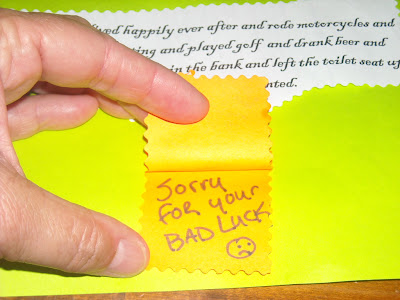 happily ever after and rode motorcycles and
and played golf and drank beer and
in the bank and left the toilet seat up
Sorry
FOR your
BAD LUCK